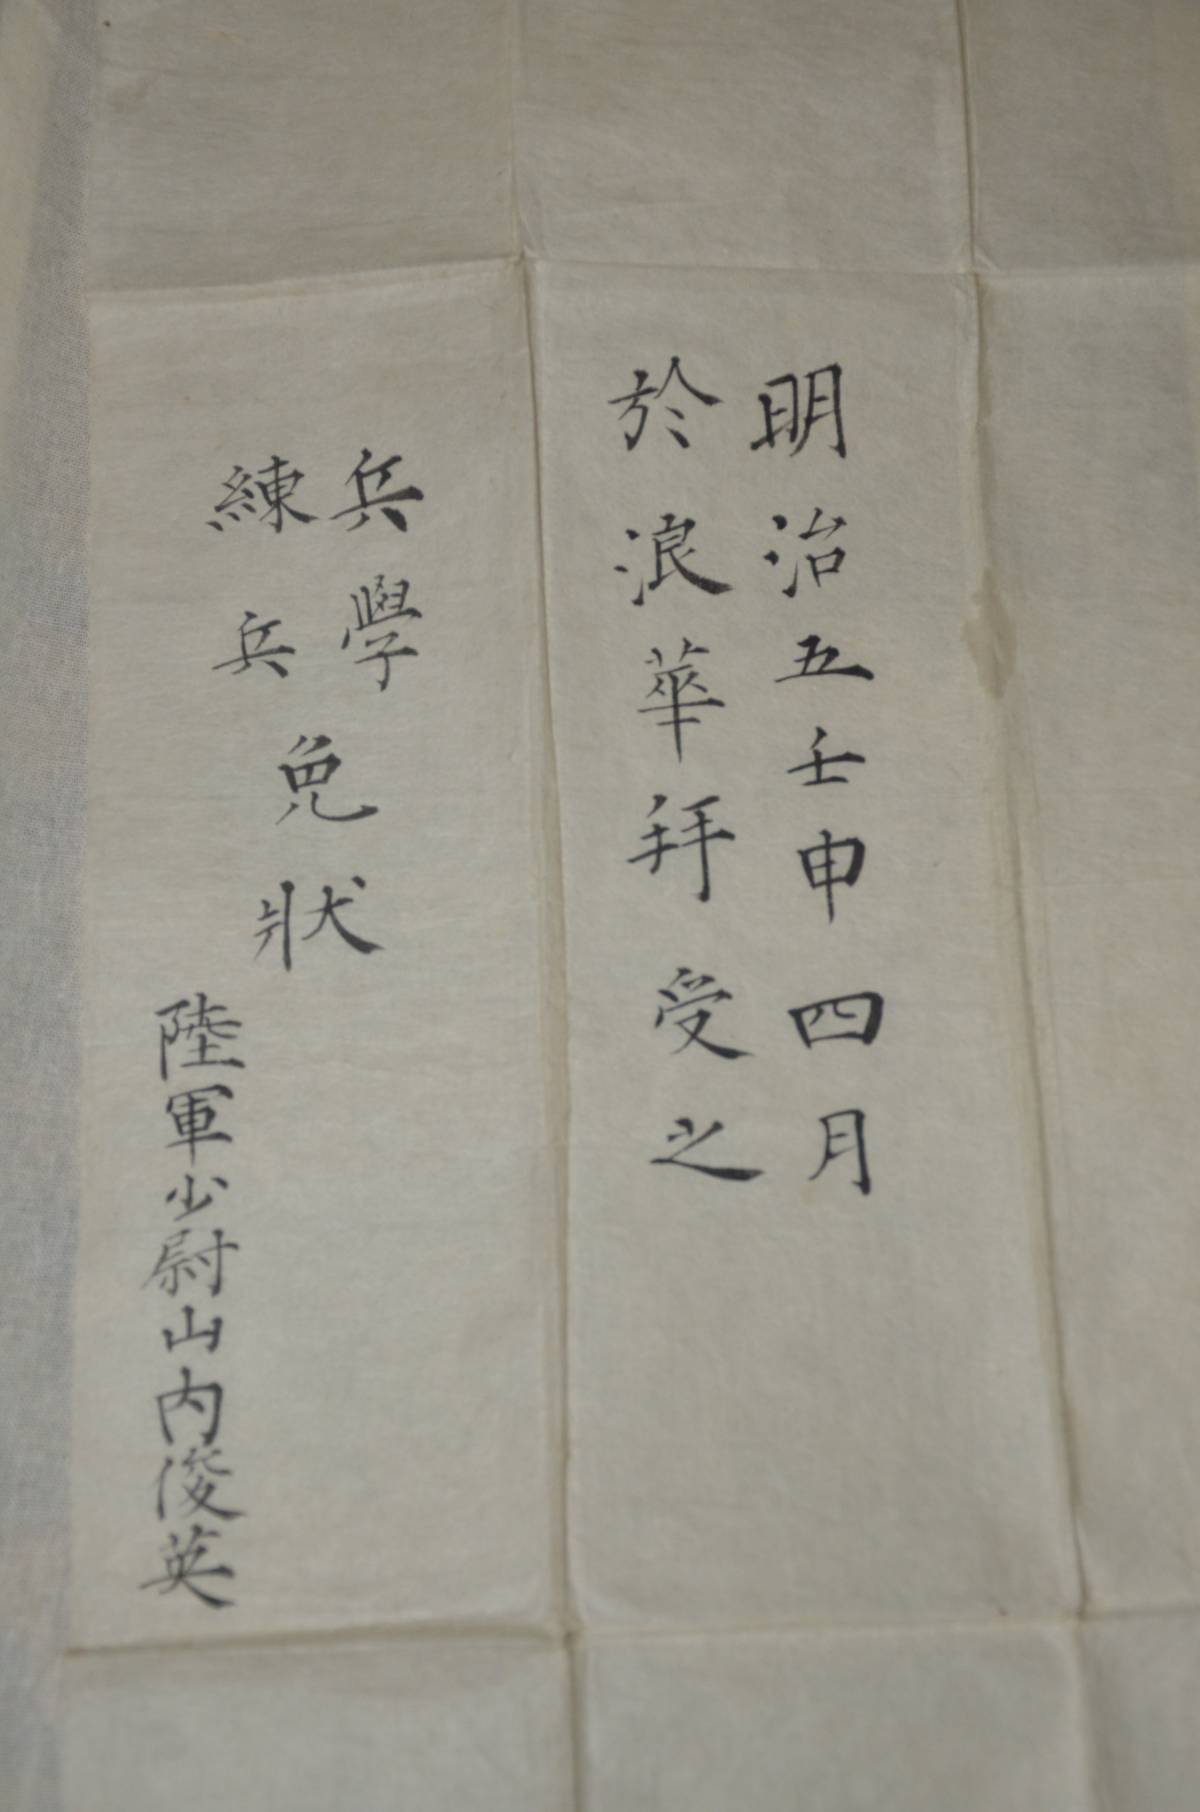 明治五壬申四月
於浪華拜受之
兵學
練兵
免狀
陸軍少尉山内俊英